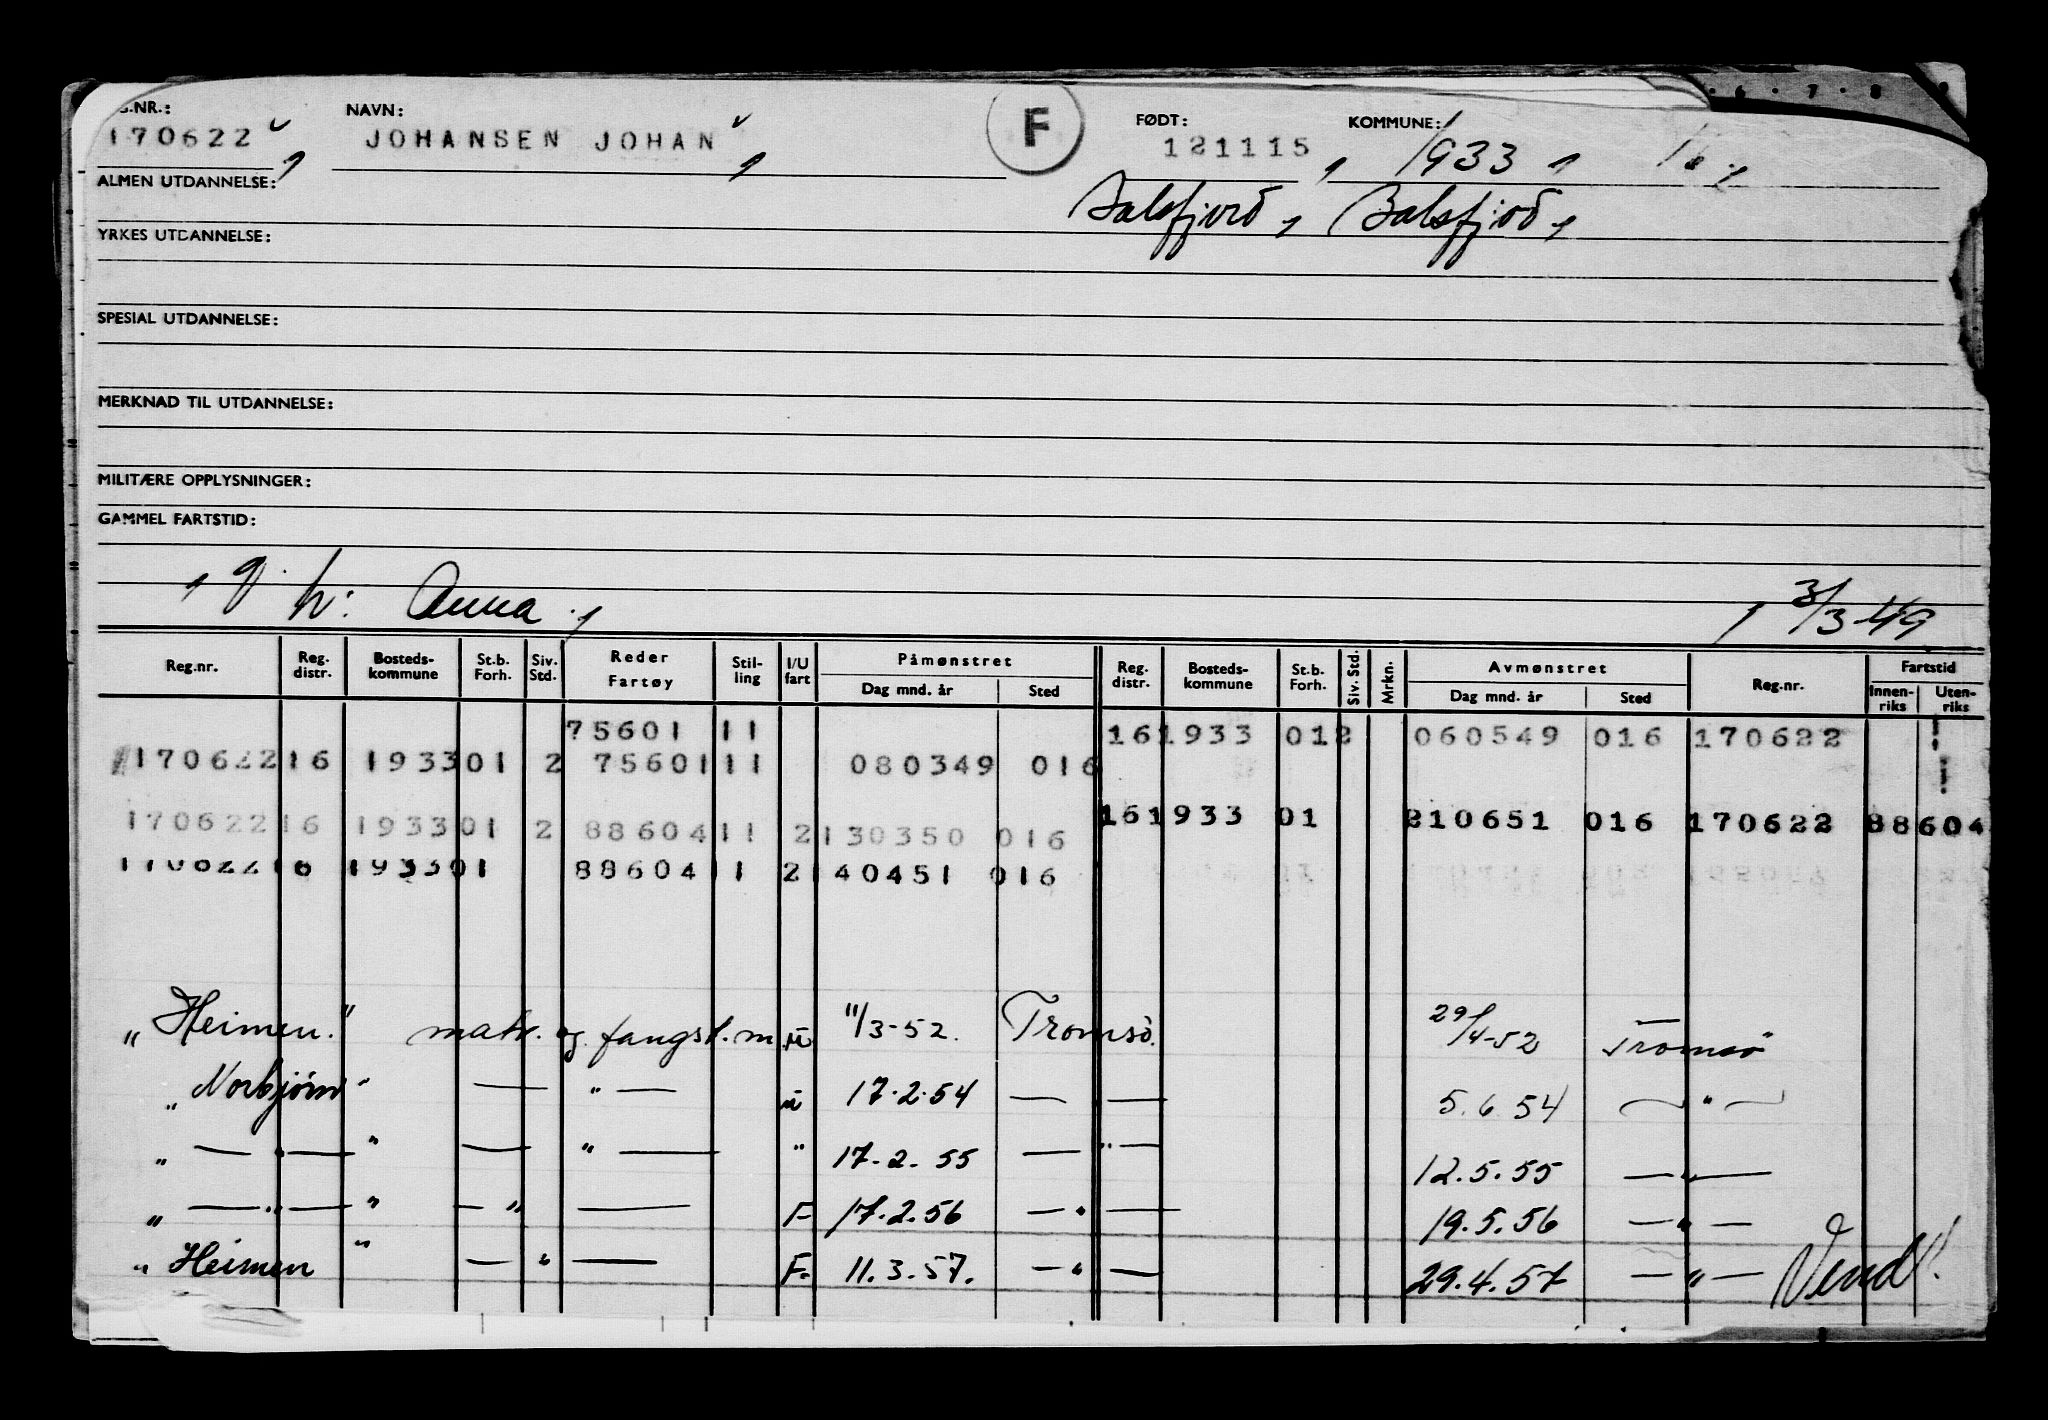 G.NR.: NAVN: F FØDT: KOMMUNE:
170622 JOHANSEN JOHAN 121115 1933 16
ALMEN UTDANNELSE: Balsfjord, Balsfjord,
YRKES UTDANNELSE:
SPESIAL UTDANNELSE:
MERKNAD TIL UTDANNELSE:
MILITÆRE OPPLYSNINGER:
GAMMEL FARTSTID:
g. h: Anna. 3/3-49
Reg.nr. Reg. distr. Bosteds-kommune St.b. Forh. Siv. Std. Reder Fartøy Stil-ling I/U fart Påmønstret Dag mnd. år Sted Reg. distr. Bosteds-kommune St.b. Forh. Siv. Std. Mrkn. Avmønstret Dag mnd. år Sted Reg.nr. Fartstid Innen-riks Uten-riks
75601 11 16 1933 01 2 060549 016 170622
170622 16 1933 01 2 75601 11 080349 016
16 1933 01 210651 016 170622 88604
170622 16 1933 01 2 88604 11 2 130350 016
170622 16 1933 01 88604 11 2 140451 016
"Heimen." matr. og fangst.m. u 11/3-52. Tromsö. 29/4-52 Tromsö
"Norbjørn" — " — u 17.2.54 — — 5.6.54 — " —
" — " — " — " — " 17.2.55 — " — 12.5.55 — " —
" — " — " — " — F 17.2.56 — " — 19.5.56 — " —
"Heimen" — " — F. 11.3.57. — " — 29.4.57 — " — Vend!